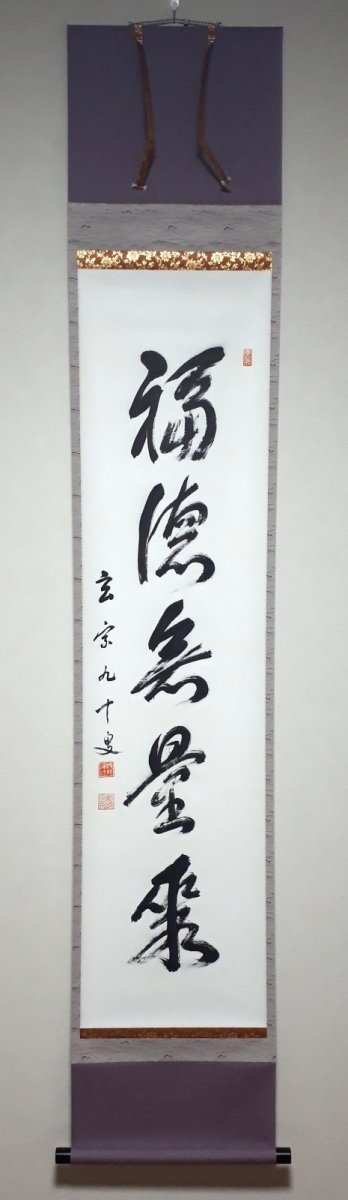 福徳無量聚
玄宗九十叟